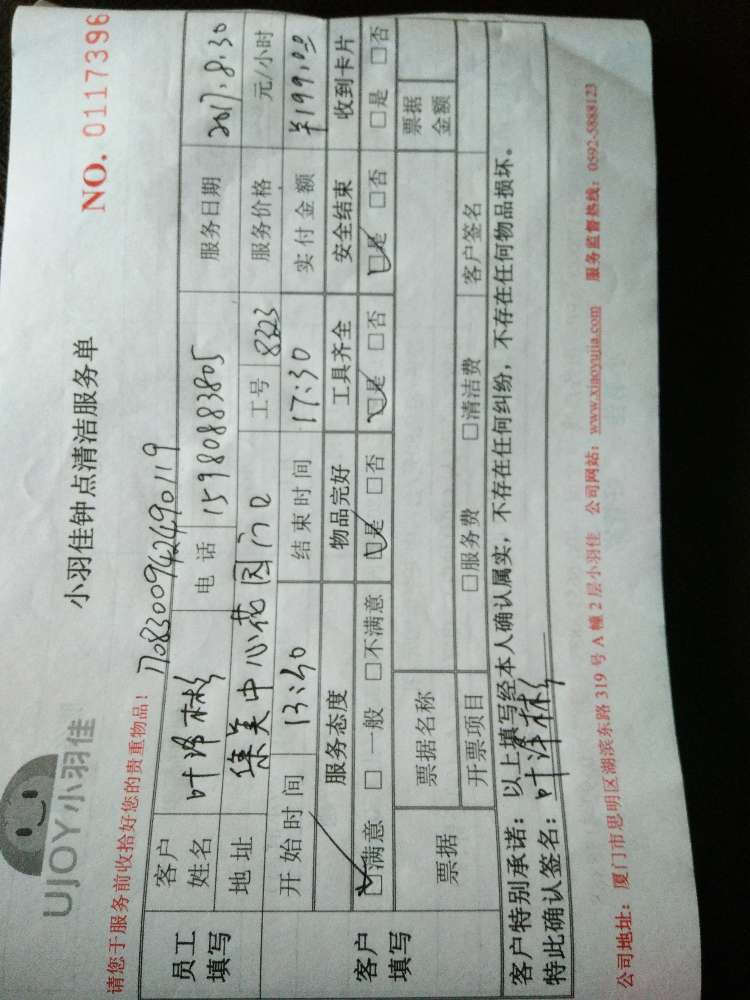 UJOY小羽佳
小羽佳钟点清洁服务单
NO. 0117396
请您于服务前收拾好您的贵重物品!
170830094249 0119
员工填写
客户姓名 叶泽彬 电话 15980883805 服务日期 2017.8.30
地址 集美中心花园门口 工号 8323 服务价格 元/小时
客户填写
开始时间 13:30 结束时间 17:30 实付金额 ¥199.00
服务态度 物品完好 工具齐全 安全结束 收到卡片
☑满意 □一般 □不满意 ☑是 □否 ☑是 □否 ☑是 □否 □是 □否
票据 票据名称 票据金额
开票项目 □服务费 □清洁费 客户签名
客户特别承诺:以上填写经本人确认属实,不存在任何纠纷,不存在任何物品损坏。
特此确认签名:叶泽彬
公司地址:厦门市思明区湖滨东路319号A幢2层小羽佳 公司网站:www.xiaoyujia.com 服务监督热线:0592-5888123